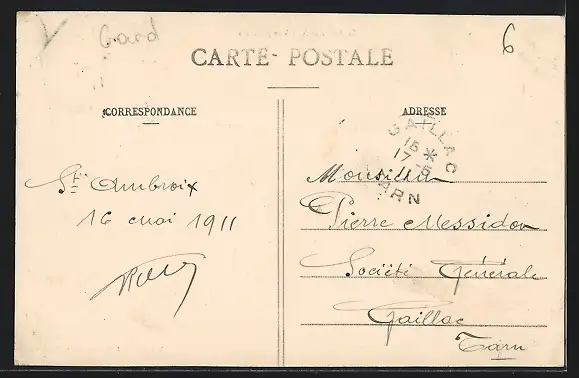 Gard
6
CARTE POSTALE
CORRESPONDANCE
ADRESSE
GAILLAC
15 *
17 -5
TARN
St Ambroix
16 mai 1911
Monsieur
Pierre Messidon
Société Générale
Gaillac
Tarn